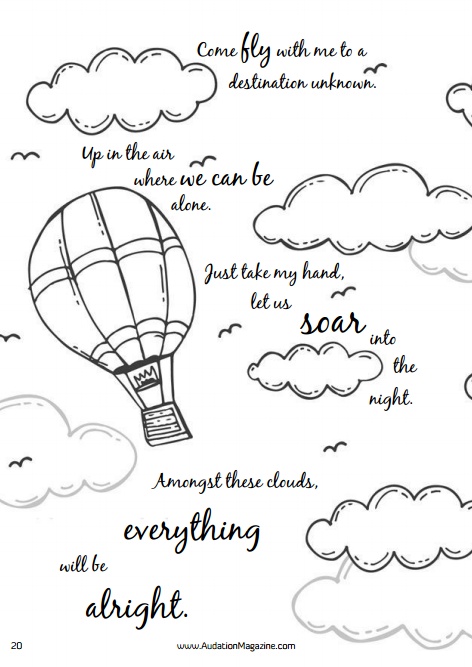 Come fly with me to a
destination unknown.
Up in the air
where we can be
alone.
Just take my hand,
let us
soar
into
the
night.
Amongst these clouds,
everything
will be
alright.
20
www.AudationMagazine.com